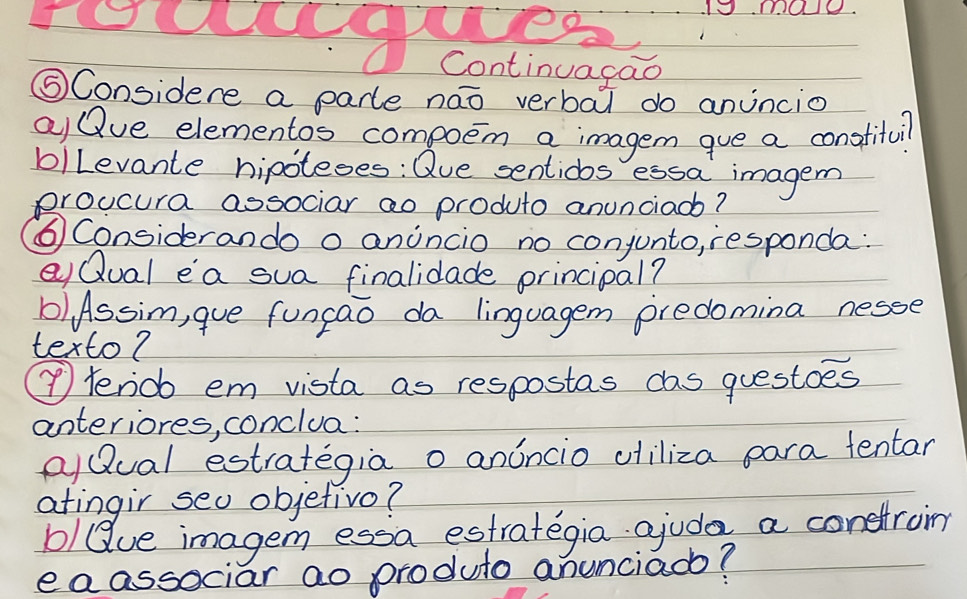 Portugues 19 maio.
Continuação
⑤Considere a parte não verbal do anúncio
a) Que elementos compoẽm a imagem que a constitui?
b) Levante hipóteses: Que sentidos essa imagem
proucura associar ao produto anunciado?
⑥Considerando o anúncio no conjunto, responda:
a) Qual é a sua finalidade principal?
b) Assim, que função da linguagem predomina nesse
texto?
⑦ tendo em vista as respostas das questoẽs
anteriores, conclua:
a) Qual estratégia o anúncio utiliza para tentar
atingir seu objetivo?
b) Que imagem essa estratégia ajuda a construir
e a associar ao produto anunciado?